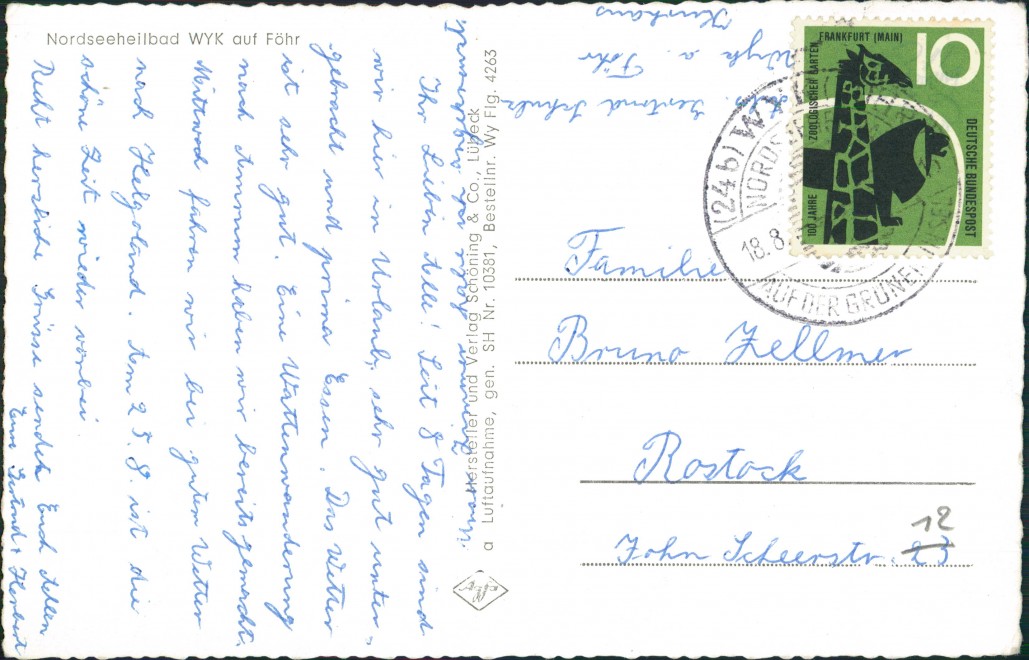 Nordseeheilbad WYK auf Föhr
Ihr Lieben alle! Seit 8 Tagen sind
wir hier in Urlaub, sehr gut unter-
gebracht und prima Essen. Das Wetter
ist sehr gut. Eine Wattenwanderung
nach Ammrum haben wir bereits gemacht.
Mittwoch fahren wir bei guten Wetter
nach Helgoland. Am 25.8. ist die
schöne Zeit wieder vorbei.
Recht herzliche Grüsse sendet Euch Allen
Eure Gertrud + Herbert
Hersteller und Verlag Schöning & Co., Lübeck
a Luftaufnahme, gen. SH Nr. 10381, Bestellnr. Wy Flg. 4263
Gertrud Schulz
Wyk a. Föhr
Kurhaus
10
FRANKFURT (MAIN)
ZOOLOGISCHER GARTEN
100 JAHRE
DEUTSCHE BUNDESPOST
(24b) WYK
NORDS
18.8.
AUF DER GRÜNEN INSEL
Familie
Bruno Zellmer
Rostock
12
John Scheerstr. 23